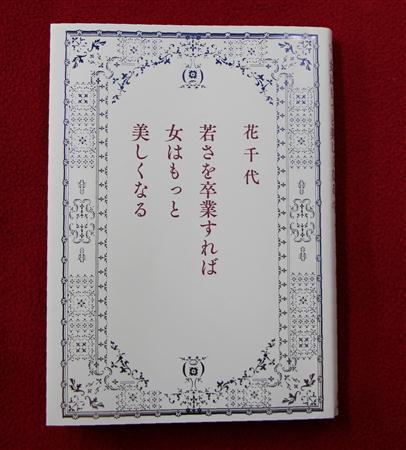 花千代
若さを卒業すれば
女はもっと
美しくなる